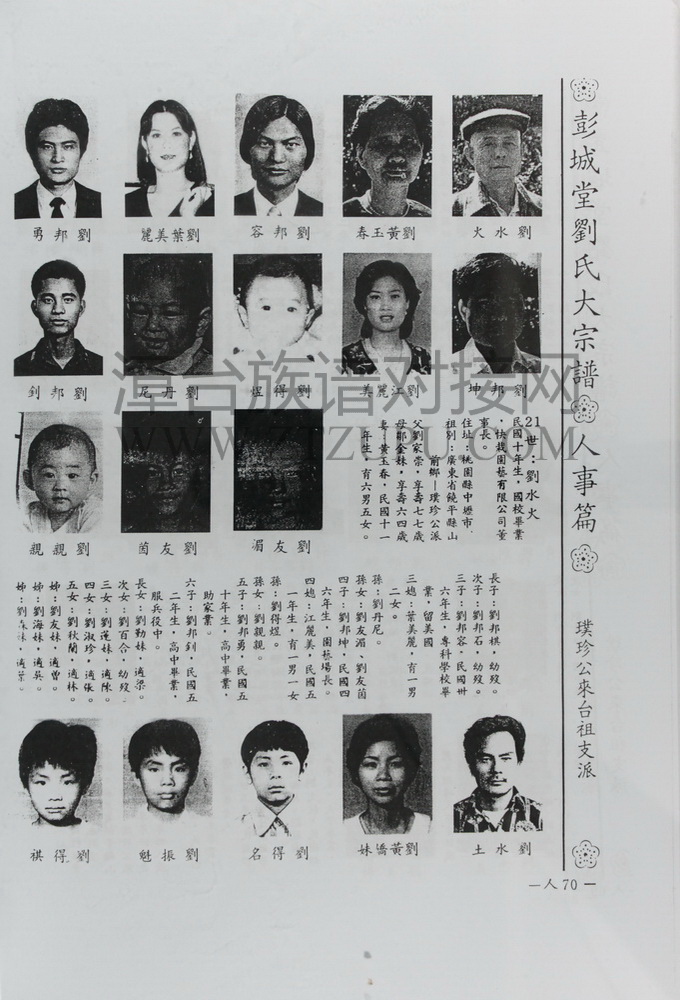 彭城堂劉氏大宗譜 人事篇 璞珍公來台祖支派
劉水火
劉黃玉春
劉邦容
劉葉美麗
劉邦勇
劉邦坤
劉江麗美
劉得煜
劉丹尼
劉邦釗
21世:劉水火
民國十年生,國校畢業
,快栽園藝有限公司董
事長。
住址:桃園縣中壢市、
祖別:廣東省饒平縣山
前鄉—璞珍公派
父劉家崇,享壽七七歲
母鄒金妹,享壽六四歲
妻:黃玉春,民國十一
年生,育六男五女。
劉友湄
劉友茵
劉親親
長子:劉邦祺,幼歿。
次子:劉邦石,幼歿。
三子:劉邦容,民國卅
六年生,專科學校畢
業,留美國
三媳:葉美麗,育一男
二女。
孫:劉丹尼。
孫女:劉友湄、劉友茵
四子:劉邦坤,民國四
六年生,園藝場長。
四媳:江麗美,民國五
一年生,育一男一女
孫:劉得煜。
孫女:劉親親。
五子:劉邦勇,民國五
十年生,高中畢業,
助家業。
六子:劉邦釗,民國五
二年生,高中畢業,
服兵役中。
長女:劉勤妹,適梁。
次女:劉百合,幼歿。
三女:劉蓮妹,適陳。
四女:劉淑珍,適張。
五女:劉秋蘭,適林。
姊:劉友妹,適曾。
姊:劉海妹,適吳。
姊:劉森妹,適葉。
劉水土
劉黃嬌妹
劉得名
劉振魁
劉得祺
—人70—
漳台族谱对接网
WWW.ZTZUPU.COM